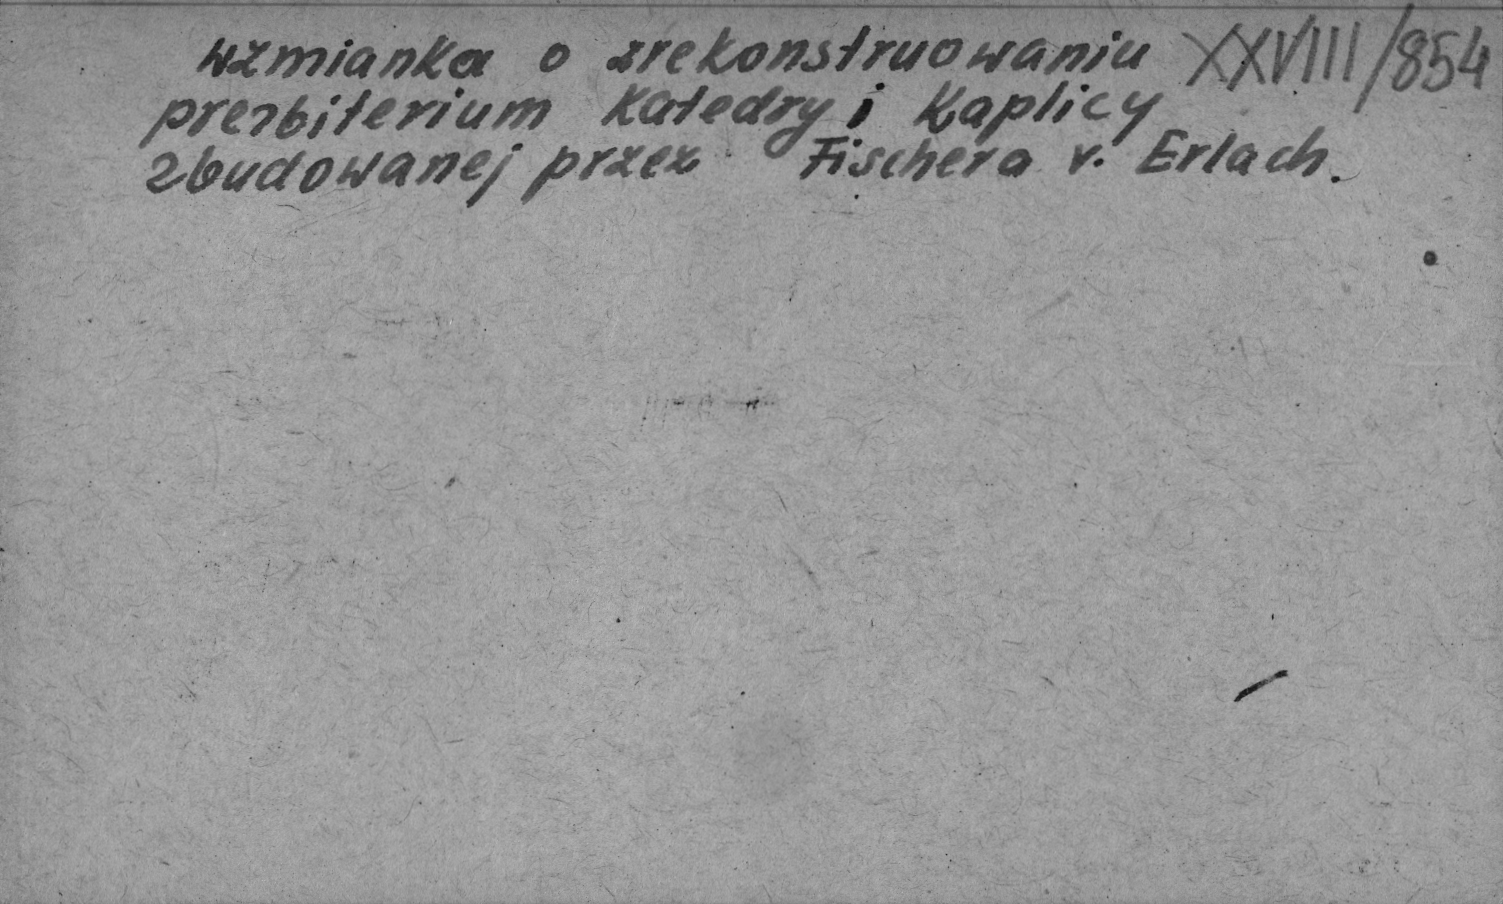 wzmianka o zrekonstruowaniu XXVIII/854
prezbiterium Katedry i Kaplicy
zbudowanej przez Fischera v. Erlach.